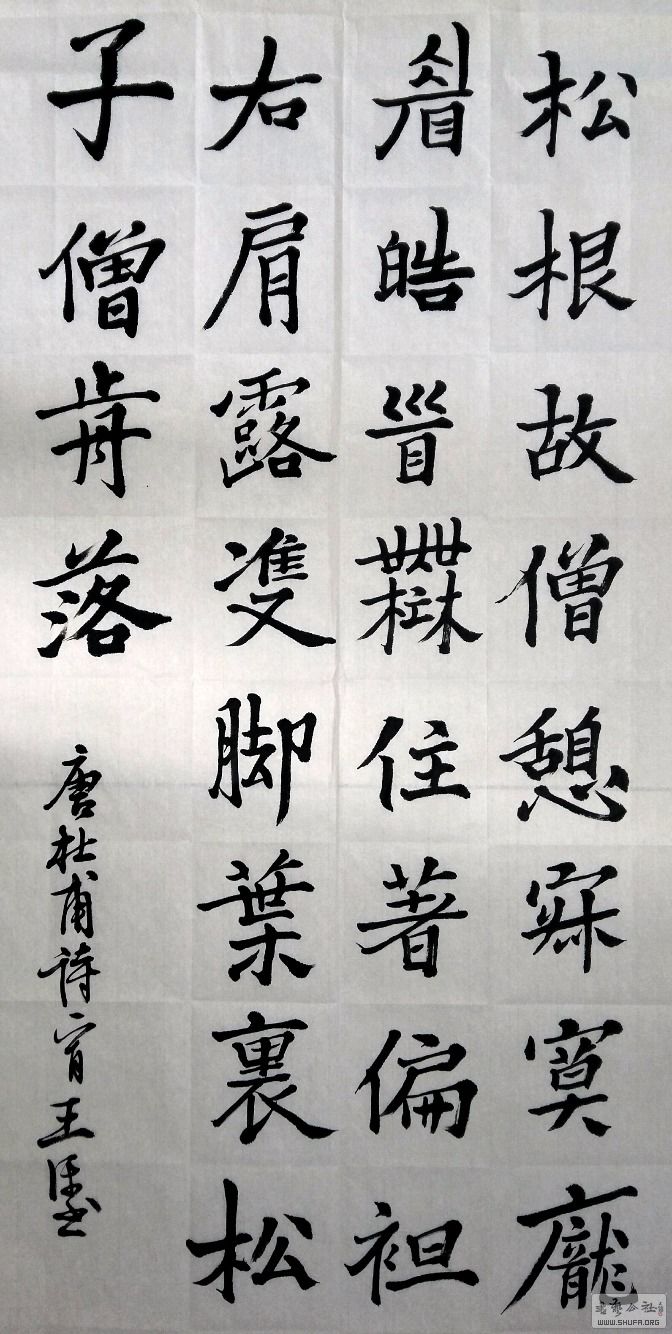 松根故僧憩寂寞龐
眉皓首無住著偏袒
右肩露雙脚葉裏松
子僧前落
唐杜甫詩
书艺公社
WWW.SHUFA.ORG